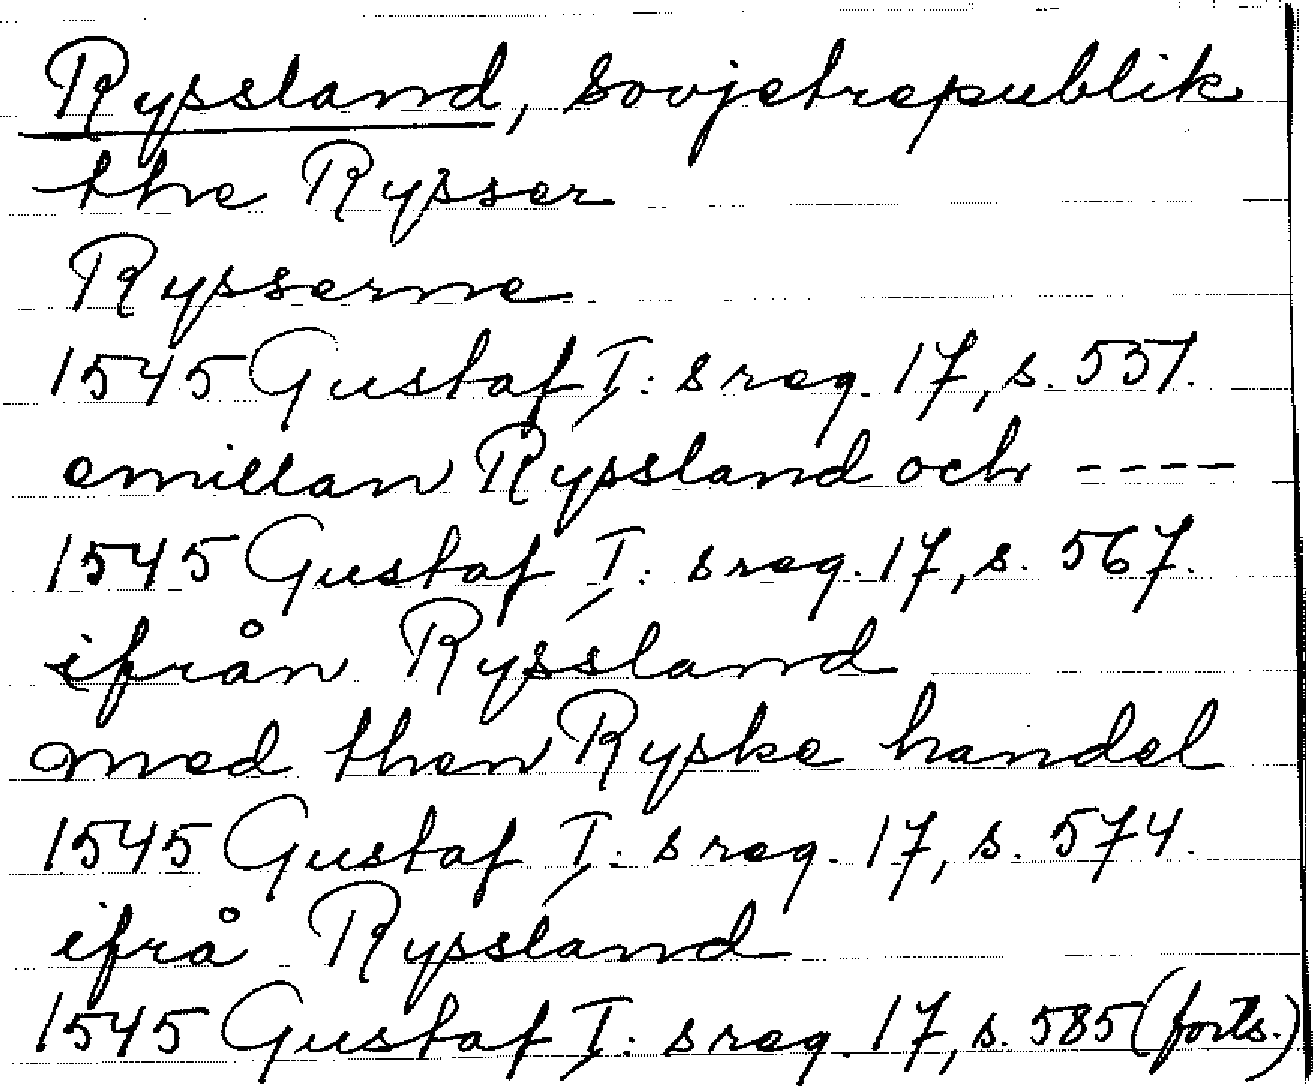 Ryssland, Sovjetrepublik
the Rysser
Rysserne
1545 Gustaf I:s reg. 17, s. 537.
emillan Ryssland och ----
1545 Gustaf I:s reg. 17, s. 567.
ifrån Ryssland
med then Ryske handel
1545 Gustaf I:s reg. 17, s. 574.
ifrå Ryssland
1545 Gustaf I:s reg. 17, s. 585 (forts.)